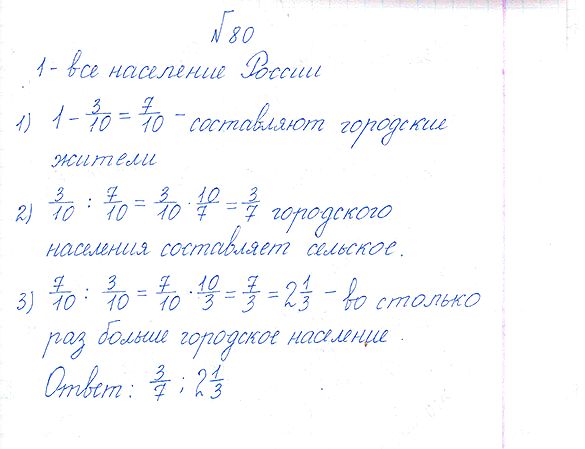 № 80
1 - все население России
1) 1 - 3/10 = 7/10 - составляют городские
жители
2) 3/10 : 7/10 = 3/10 · 10/7 = 3/7 городского
населения составляет сельское.
3) 7/10 : 3/10 = 7/10 · 10/3 = 7/3 = 2 1/3 - во столько
раз больше городское население.
Ответ: 3/7 ; 2 1/3